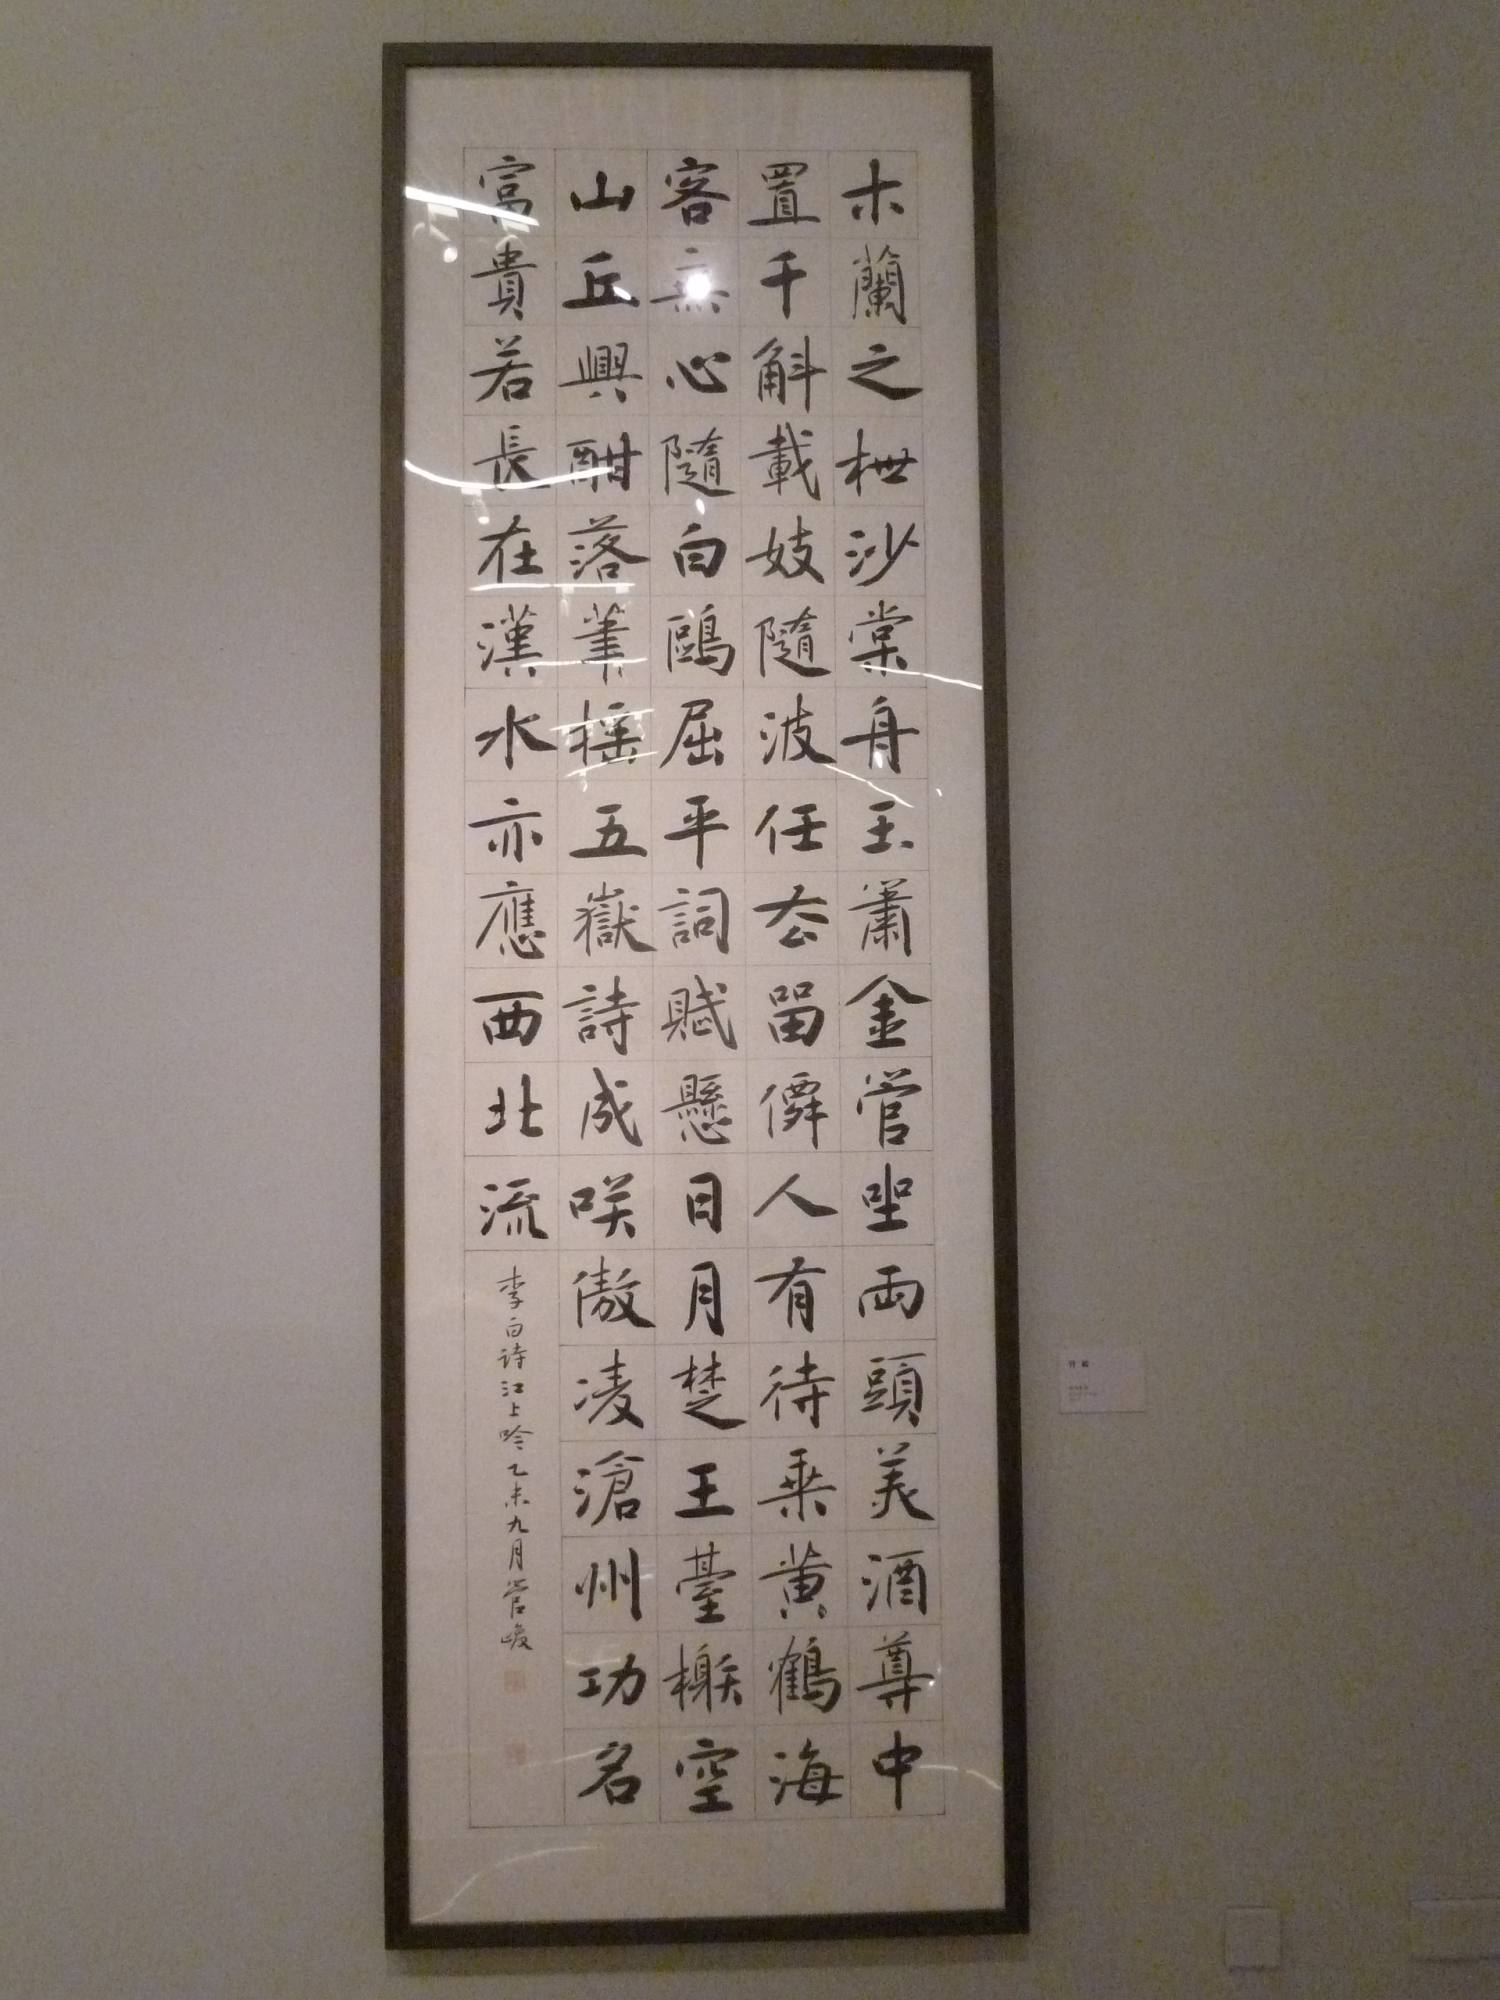 木蘭之枻沙棠舟玉簫金管坐兩頭美酒尊中
置千斛載妓隨波任去留僊人有待乘黃鶴海
客無心隨白鷗屈平詞賦懸日月楚王臺榭空
山丘興酣落筆搖五嶽詩成咲傲凌滄州功名
富貴若長在漢水亦應西北流
李白诗江上吟乙未九月管峻